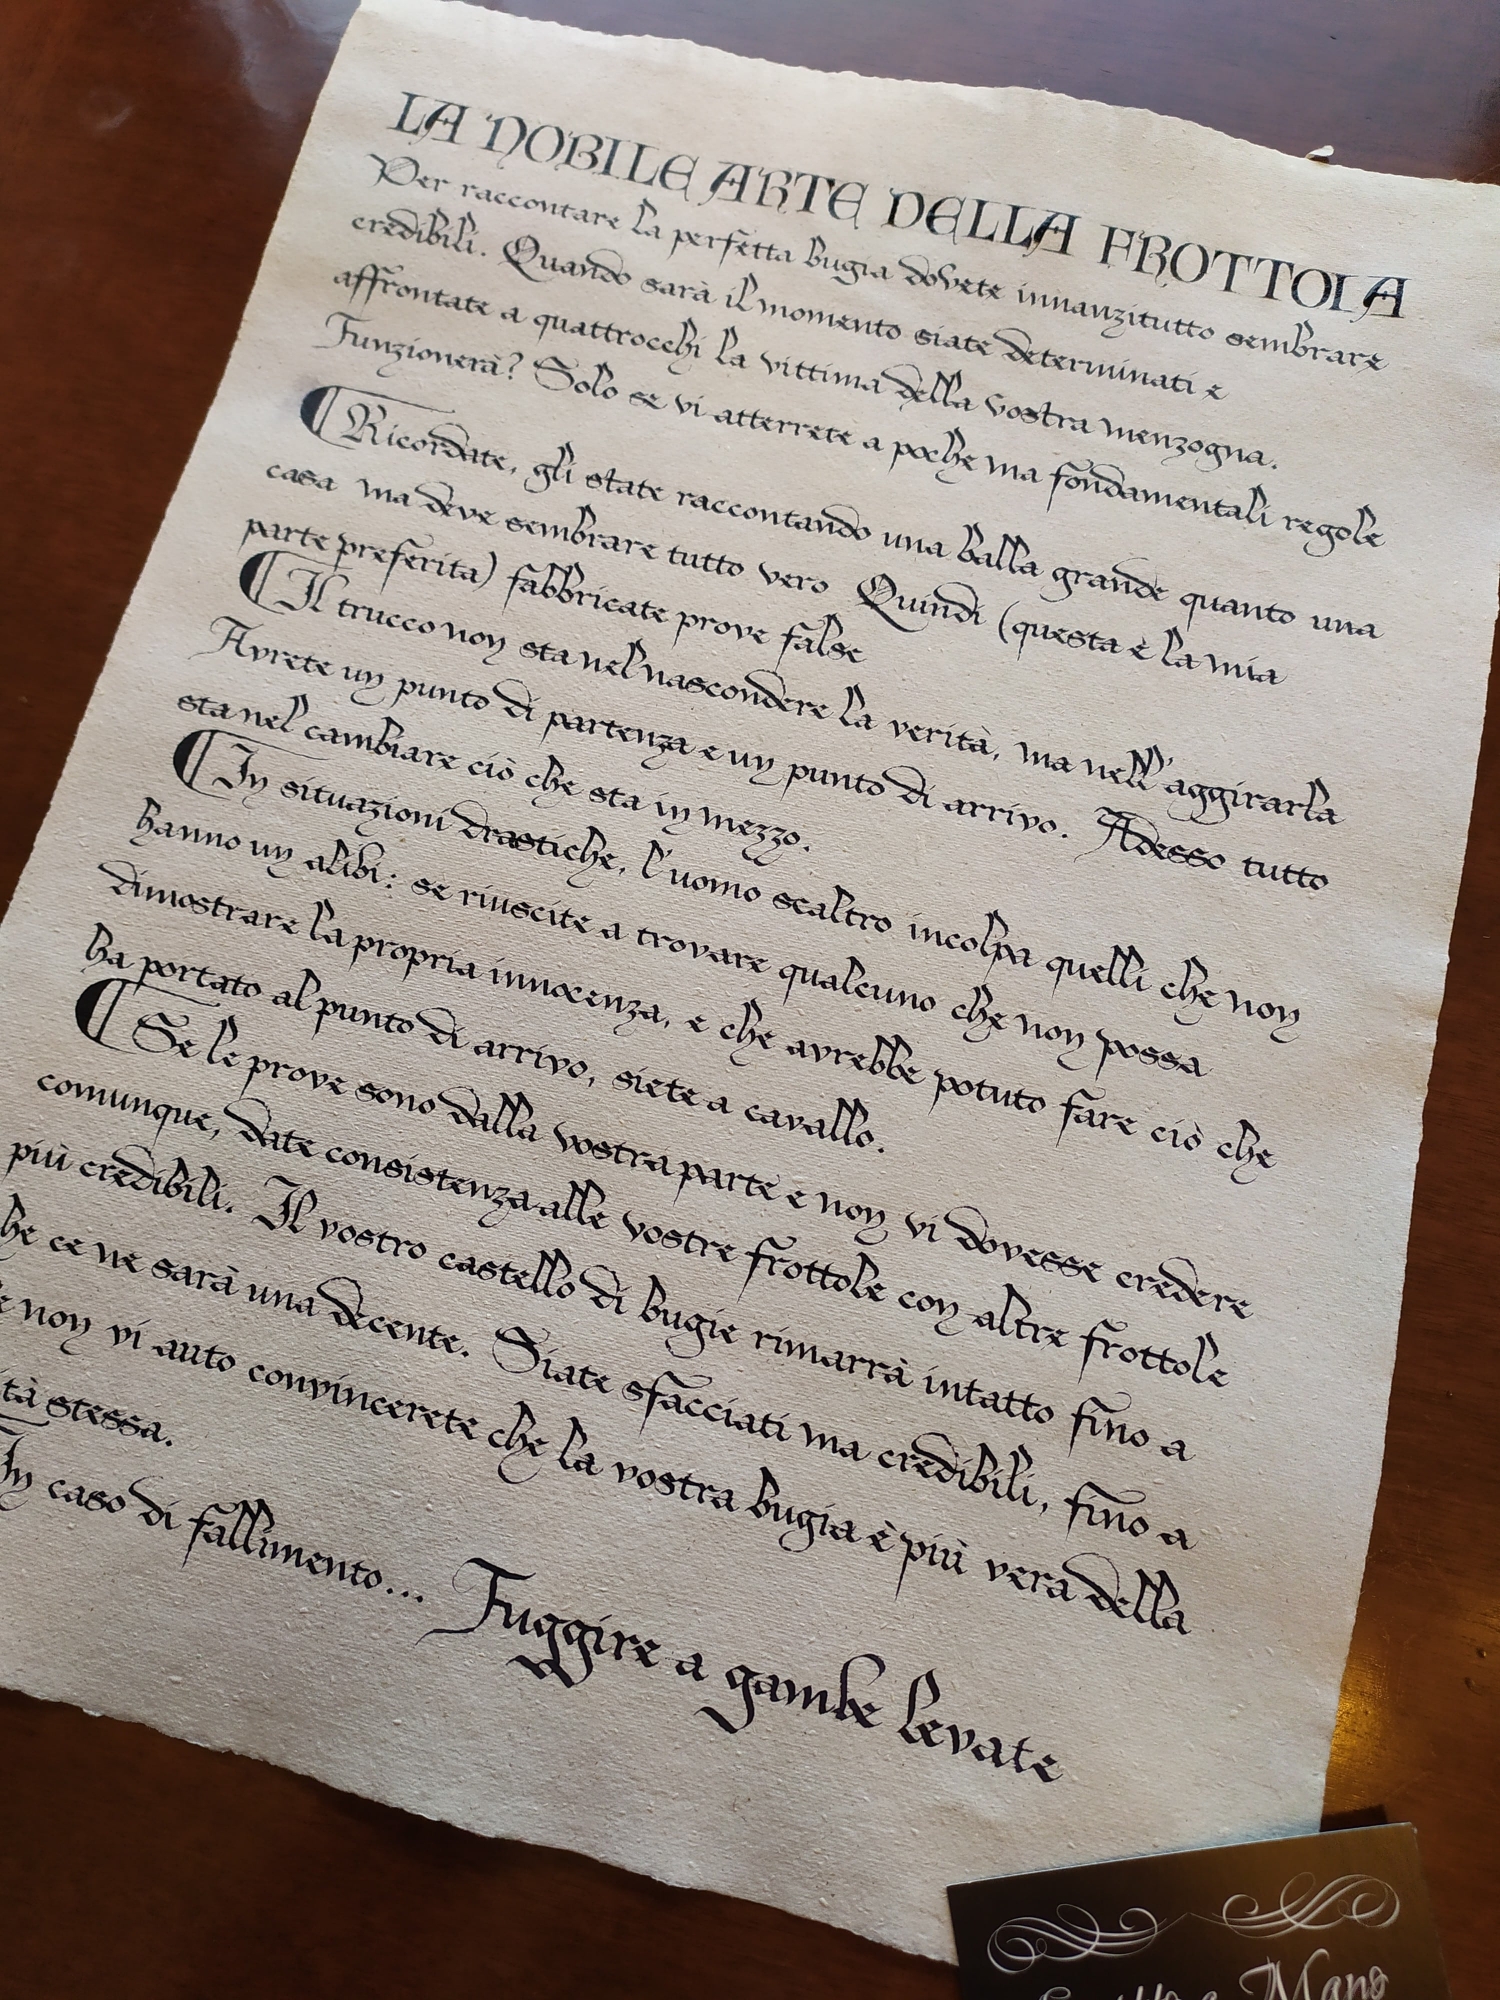 LA NOBILE ARTE DELLA FROTTOLA
Per raccontare la perfetta bugia dovete innanzitutto sembrare
credibili. Quando sarà il momento siate determinati e
affrontate a quattrocchi la vittima della vostra menzogna.
Funzionerà? Solo se vi atterrete a poche ma fondamentali regole
Ricordate, gli state raccontando una balla grande quanto una
casa ma deve sembrare tutto vero Quindi (questa è la mia
parte preferita) fabbricate prove false
Il trucco non sta nel nascondere la verità, ma nell'aggirarla
Avrete un punto di partenza e un punto di arrivo. Adesso tutto
sta nel cambiare ciò che sta in mezzo.
In situazioni drastiche, l'uomo scaltro incolpa quelli che non
hanno un alibi: se riuscite a trovare qualcuno che non possa
dimostrare la propria innocenza, e che avrebbe potuto fare ciò che
ha portato al punto di arrivo, siete a cavallo.
Se le prove sono dalla vostra parte e non vi dovesse credere
comunque, date consistenza alle vostre frottole con altre frottole
più credibili. Il vostro castello di bugie rimarrà intatto fino a
he ce ne sarà una decente. Siate sfacciati ma credibili, fino a
e non vi auto convincerete che la vostra bugia è più vera della
tà stessa.
In caso di fallimento... Fuggire a gambe levate
a Mano